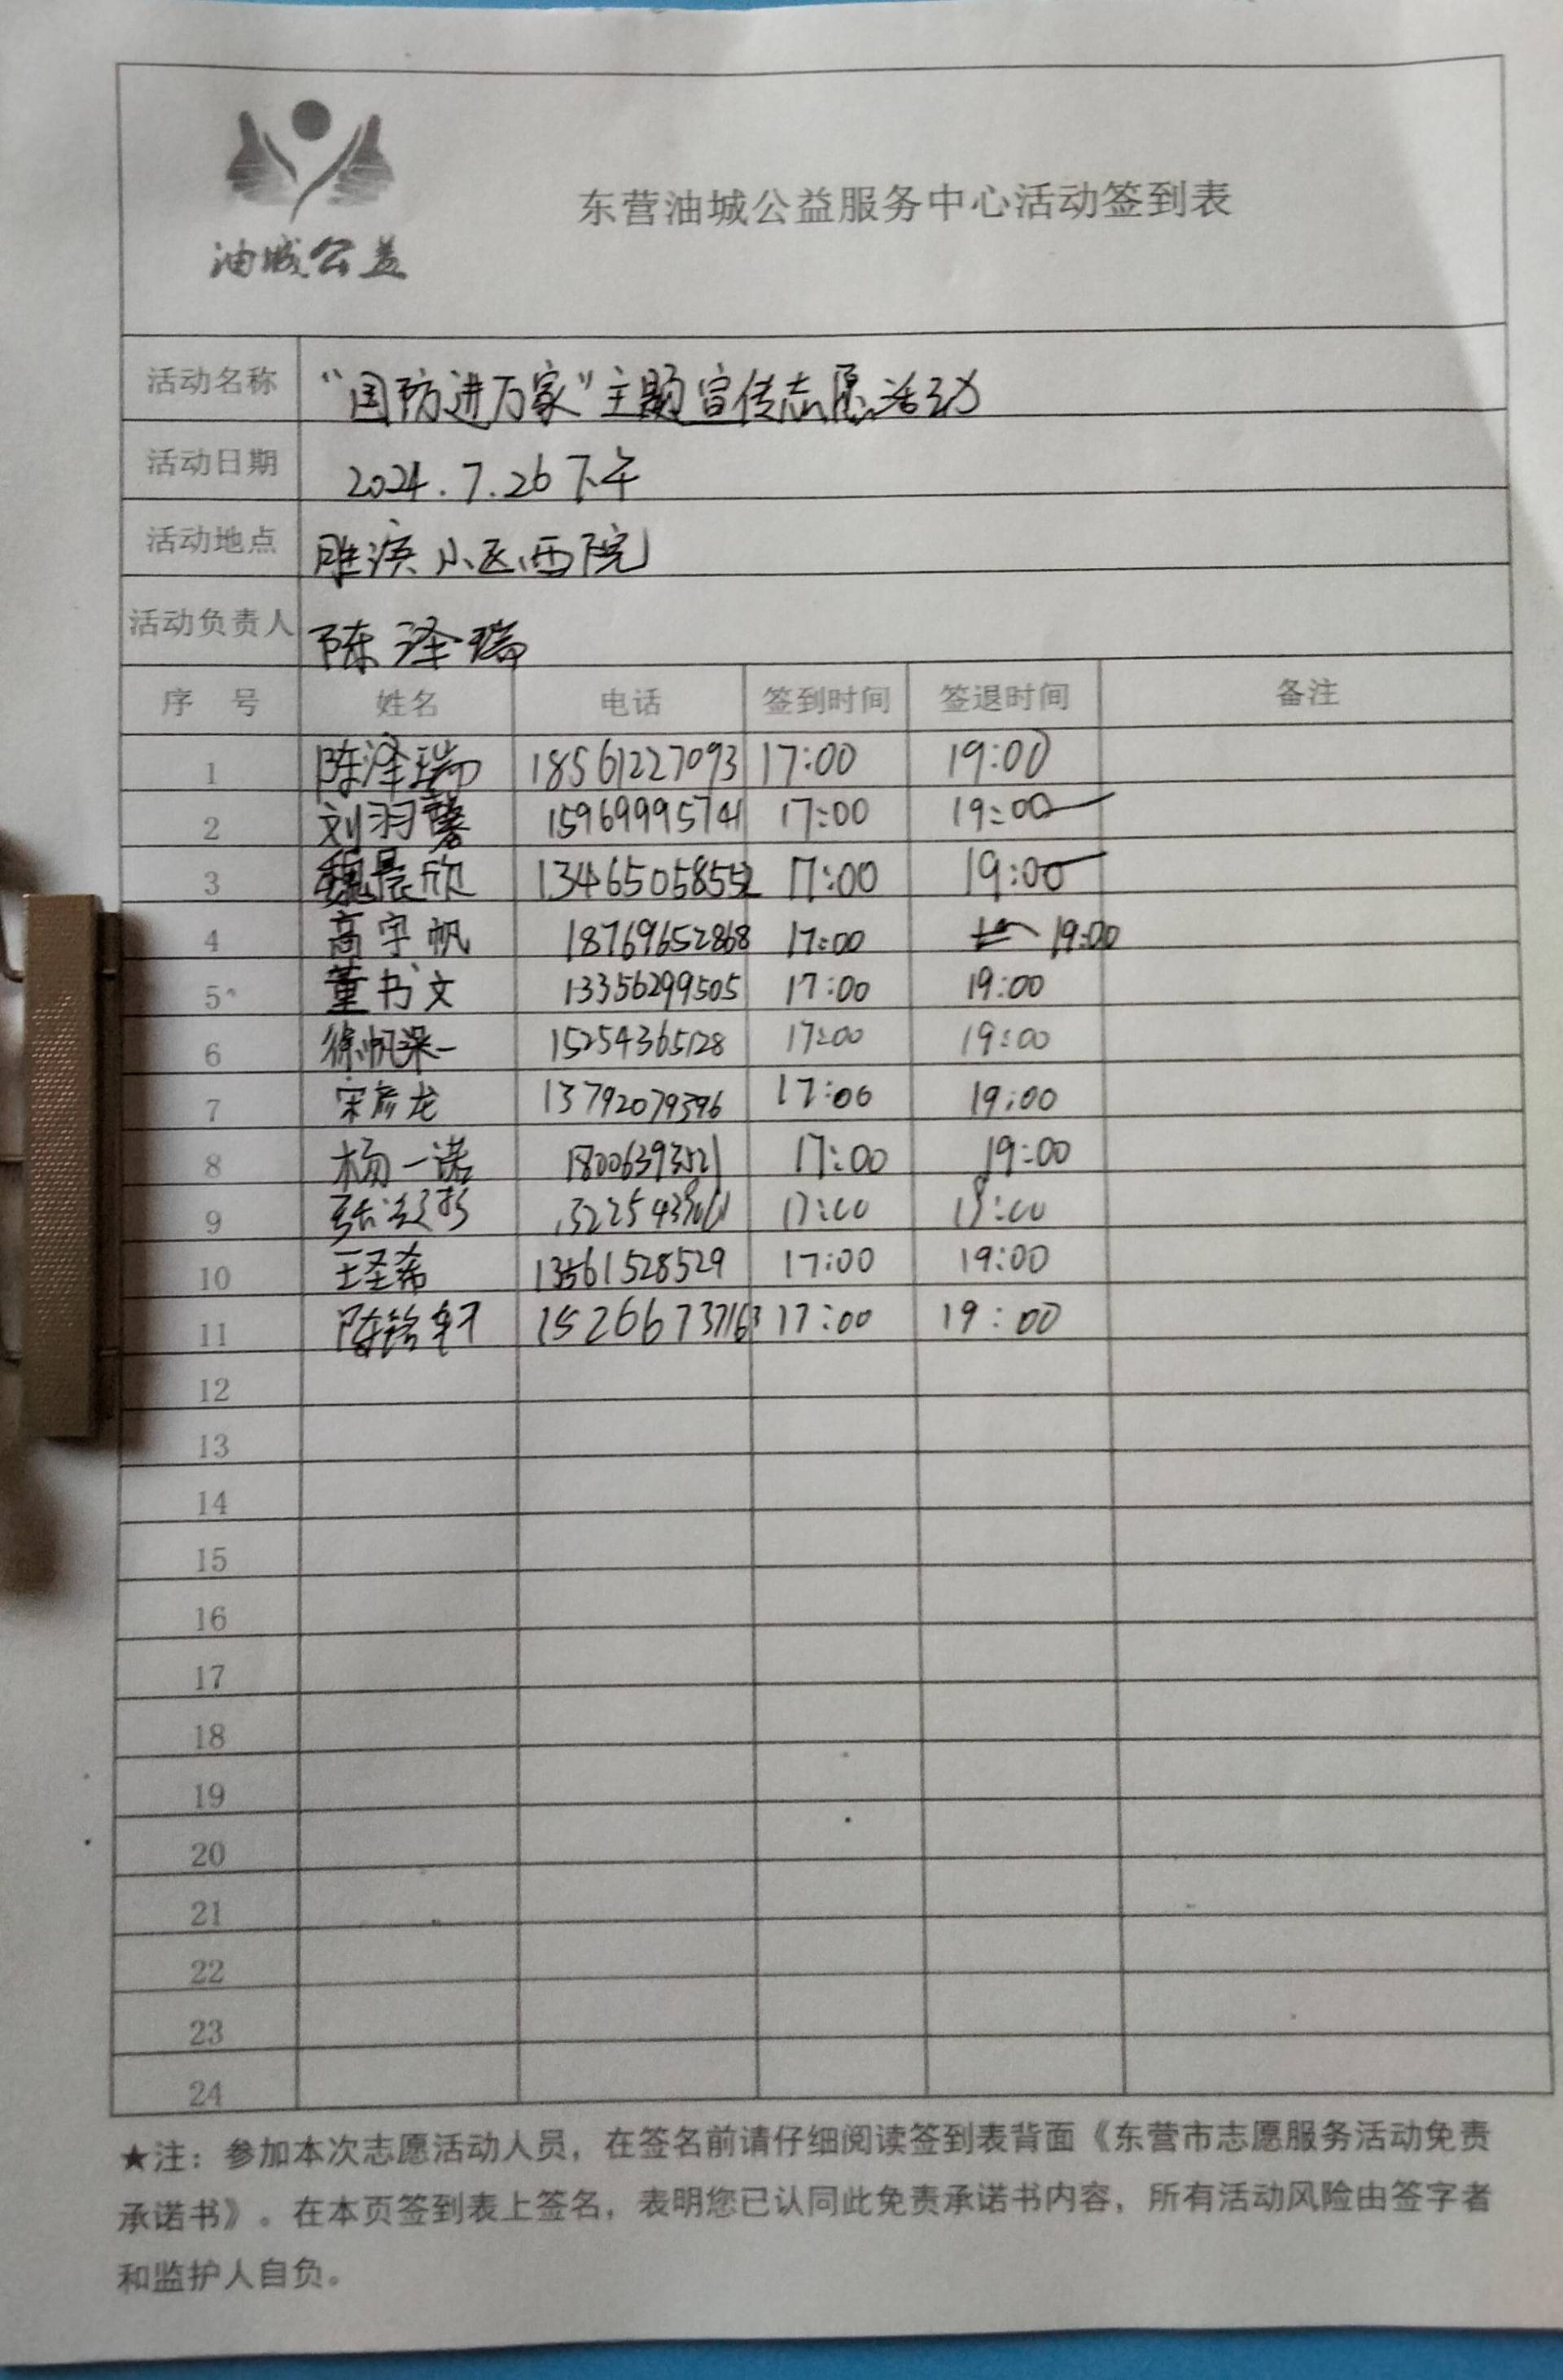 油城公益
东营油城公益服务中心活动签到表
活动名称 “国防进万家”主题宣传志愿活动
活动日期 2024.7.26下午
活动地点 胜滨小区西院
活动负责人 陈泽瑞
序 号 姓名 电话 签到时间 签退时间 备注
1 陈泽瑞 18561227093 17:00 19:00
2 刘羽馨 15969995741 17:00 19:00
3 魏晨欣 17:00 19:00
4 高宇帆 18769652868 17:00 19:00
5 董书文 13356299505 17:00 19:00
6 徐帆深一 15254365128 17:00 19:00
7 宋彦龙 13792079396 17:00 19:00
8 杨一诺 18006393521 17:00 19:00
9 17:00
10 王圣希 13561528529 17:00 19:00
11 陈铭轩 15266737163 17:00 19:00
12
13
14
15
16
17
18
19
20
21
22
23
24
★注：参加本次志愿活动人员，在签名前请仔细阅读签到表背面《东营市志愿服务活动免责
承诺书》。在本页签到表上签名，表明您已认同此免责承诺书内容，所有活动风险由签字者
和监护人自负。